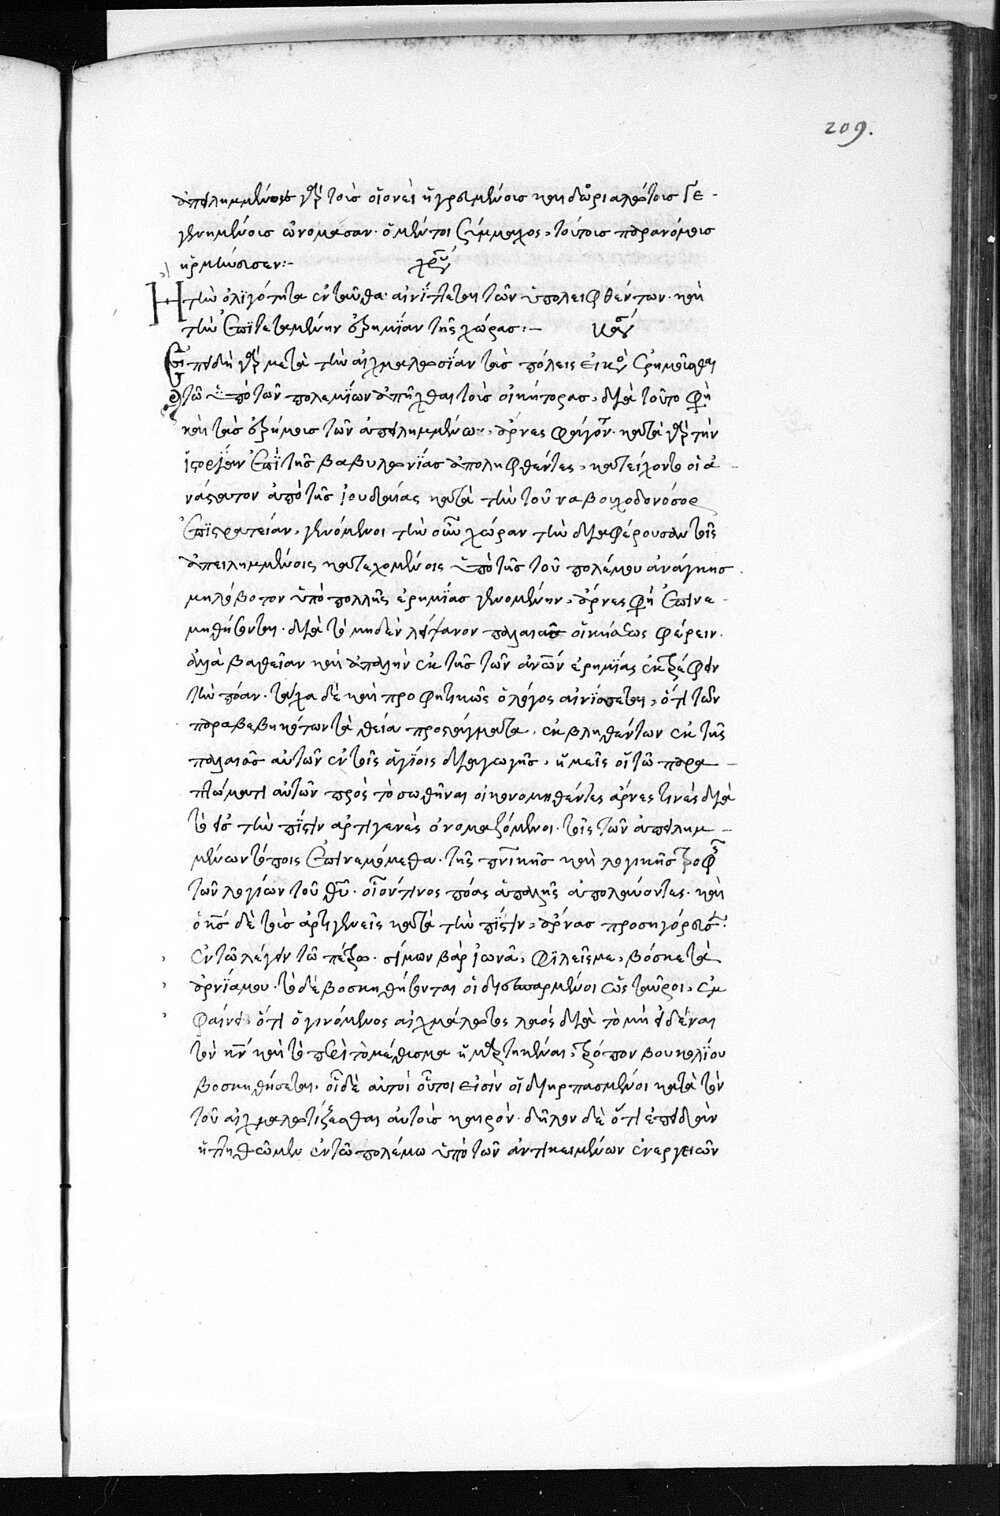 209.
γὰρ τοῖς οἱονεὶ ἠγρϊωμένοις καὶ δωριαλώτοις γε-
γενημένοις ὠνόμασαν. ὁ μέντοι Σύμμαχος, τούτοις παρανόμοις
ἡρμήνευσεν:-
Η τὴν ὀλιγότητα ἐνταῦθα αἰνίττεται τῶν ὑπολειφθέντων. καὶ
τὴν ἐπιτεταμένην ἐρημίαν τῆς χώρας:-
γὰρ μετὰ τὴν αἰχμαλωσίαν τὰς πόλεις
τῶ ὑπὸ τῶν πολεμίων ἀπῆχθαι τοὺς οἰκήτορας, διὰ τοῦτο φησὶ
καὶ τὰς ἐρήμους τῶν ἄρνες φάγονται. κατὰ γὰρ τὴν
ἱστορίαν ἐπὶ τῆς βαβυλωνίας ἀποληφθέντες, κατείχοντο οἱ ἀ-
νάστατοι ἀπὸ τῆς ἰουδαίας κατὰ τὴν τοῦ ναβουχοδονόσορ
ἐπιστρατείαν, γενόμενοι τὴν οὖν χώραν τὴν διαφέρουσαν τοῖς
ἀπειλημμένοις κατεχομένοις ὑπὸ τῆς τοῦ πολέμου ἀνάγκης
μηλόβοτον ὑπὸ πολλῆς ἐρημίας γενομένην, ἄρνες φησὶ ἐπινε-
μηθήσονται. διὰ τὸ μηδὲν λείψανον παλαιᾶς οἰκήσεως φέρειν.
ἀλλὰ βαθεῖαν καὶ ἁπαλὴν ἐκ τῆς τῶν ἀνων ἐρημίας ἐκτρέφειν
τὴν πόαν. τάχα δὲ καὶ προφητικῶς ὁ λόγος αἰνίττεται, ὅτι τῶν
παραβεβηκότων τὰ θεῖα προστάγματα, ἐκβληθέντων ἐκ τῆς
παλαιᾶς αὐτῶν ἐν τοῖς ἁγίοις διαγωγῆς, ἡμεῖς οἱ τῶ παρα-
πτώματι αὐτῶν πρὸς τὸ σωθῆναι οἰκονομηθέντες ἄρνες τινὲς διὰ
τὸ εἰς τὴν πίστιν ἀρτιγενὲς ὀνομαζόμενοι. τοῖς τῶν ἀπειλημ-
μένων τόποις ἐπινεμόμεθα. τῆς πνικῆς καὶ λογικῆς τροφῆς
τῶν λογίων τοῦ θυ. οἷόν τινος πόας ἁπαλῆς ἀπολαύοντες. καὶ
ὁ κς δὲ τοὺς ἀρτιγενεῖς κατὰ τὴν πίστιν, ἄρνας προσηγόρευσεν.
ἐν τῶ λέγειν τῶ πέτρω. σίμων βὰρ ἰωνᾶ, φιλεῖς με, βόσκε τὰ
ἀρνία μου. τὸ δὲ βοσκηθήσονται οἱ διεσπαρμένοι ὡς ταῦροι, ἐμ-
φαίνει ὅτι ὁ γινόμενος αἰχμάλωτος λαὸς διὰ τὸ μὴ εἰδέναι
τὸν κν καὶ τὸ περὶ τὸ μέθυσμα ἠσχοληκέναι, τρόπον βουκολίου
βοσκηθήσεται. οἱ δὲ αὐτοὶ οὗτοι εἰσὶν οἱ διηρπασμένοι κατὰ τὸν
τοῦ αἰχμαλωτίζεσθαι αὐτοὺς καιρόν. δῆλον δὲ ὅτι ἐπειδὰν
ἡττηθῶμεν ἐν τῶ πολέμω ὑπὸ τῶν ἀντικειμένων ἐνεργειῶν